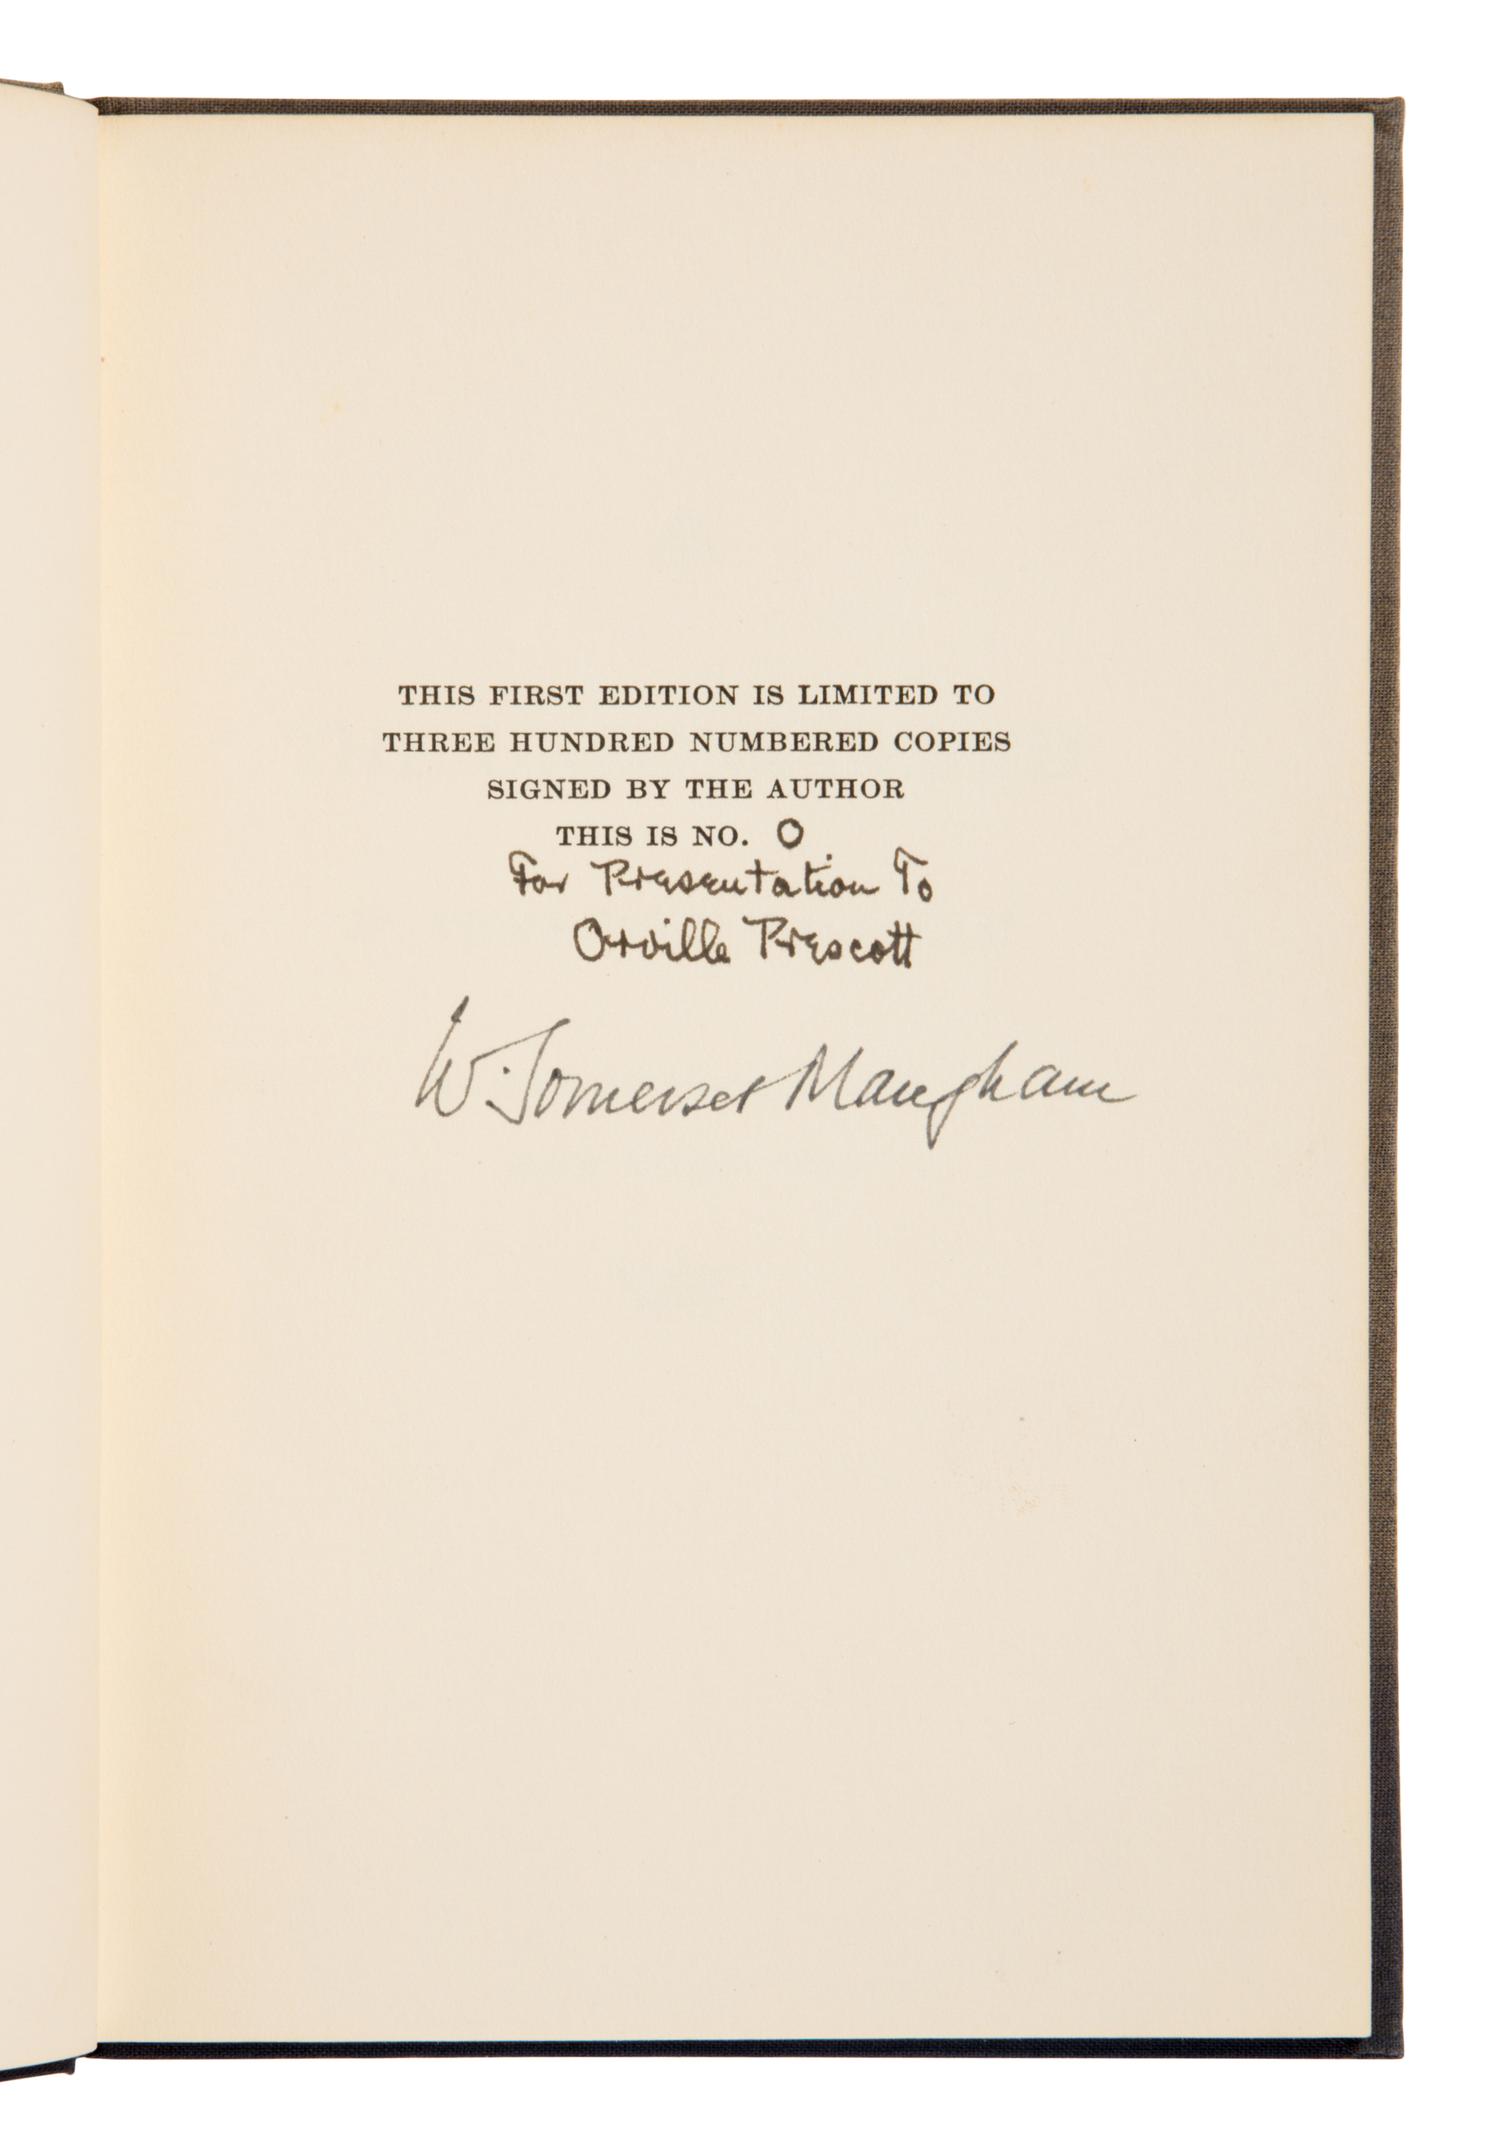 THIS FIRST EDITION IS LIMITED TO
THREE HUNDRED NUMBERED COPIES
SIGNED BY THE AUTHOR
THIS IS NO. O
For Presentation To
Orville Prescott
W. Somerset Maugham